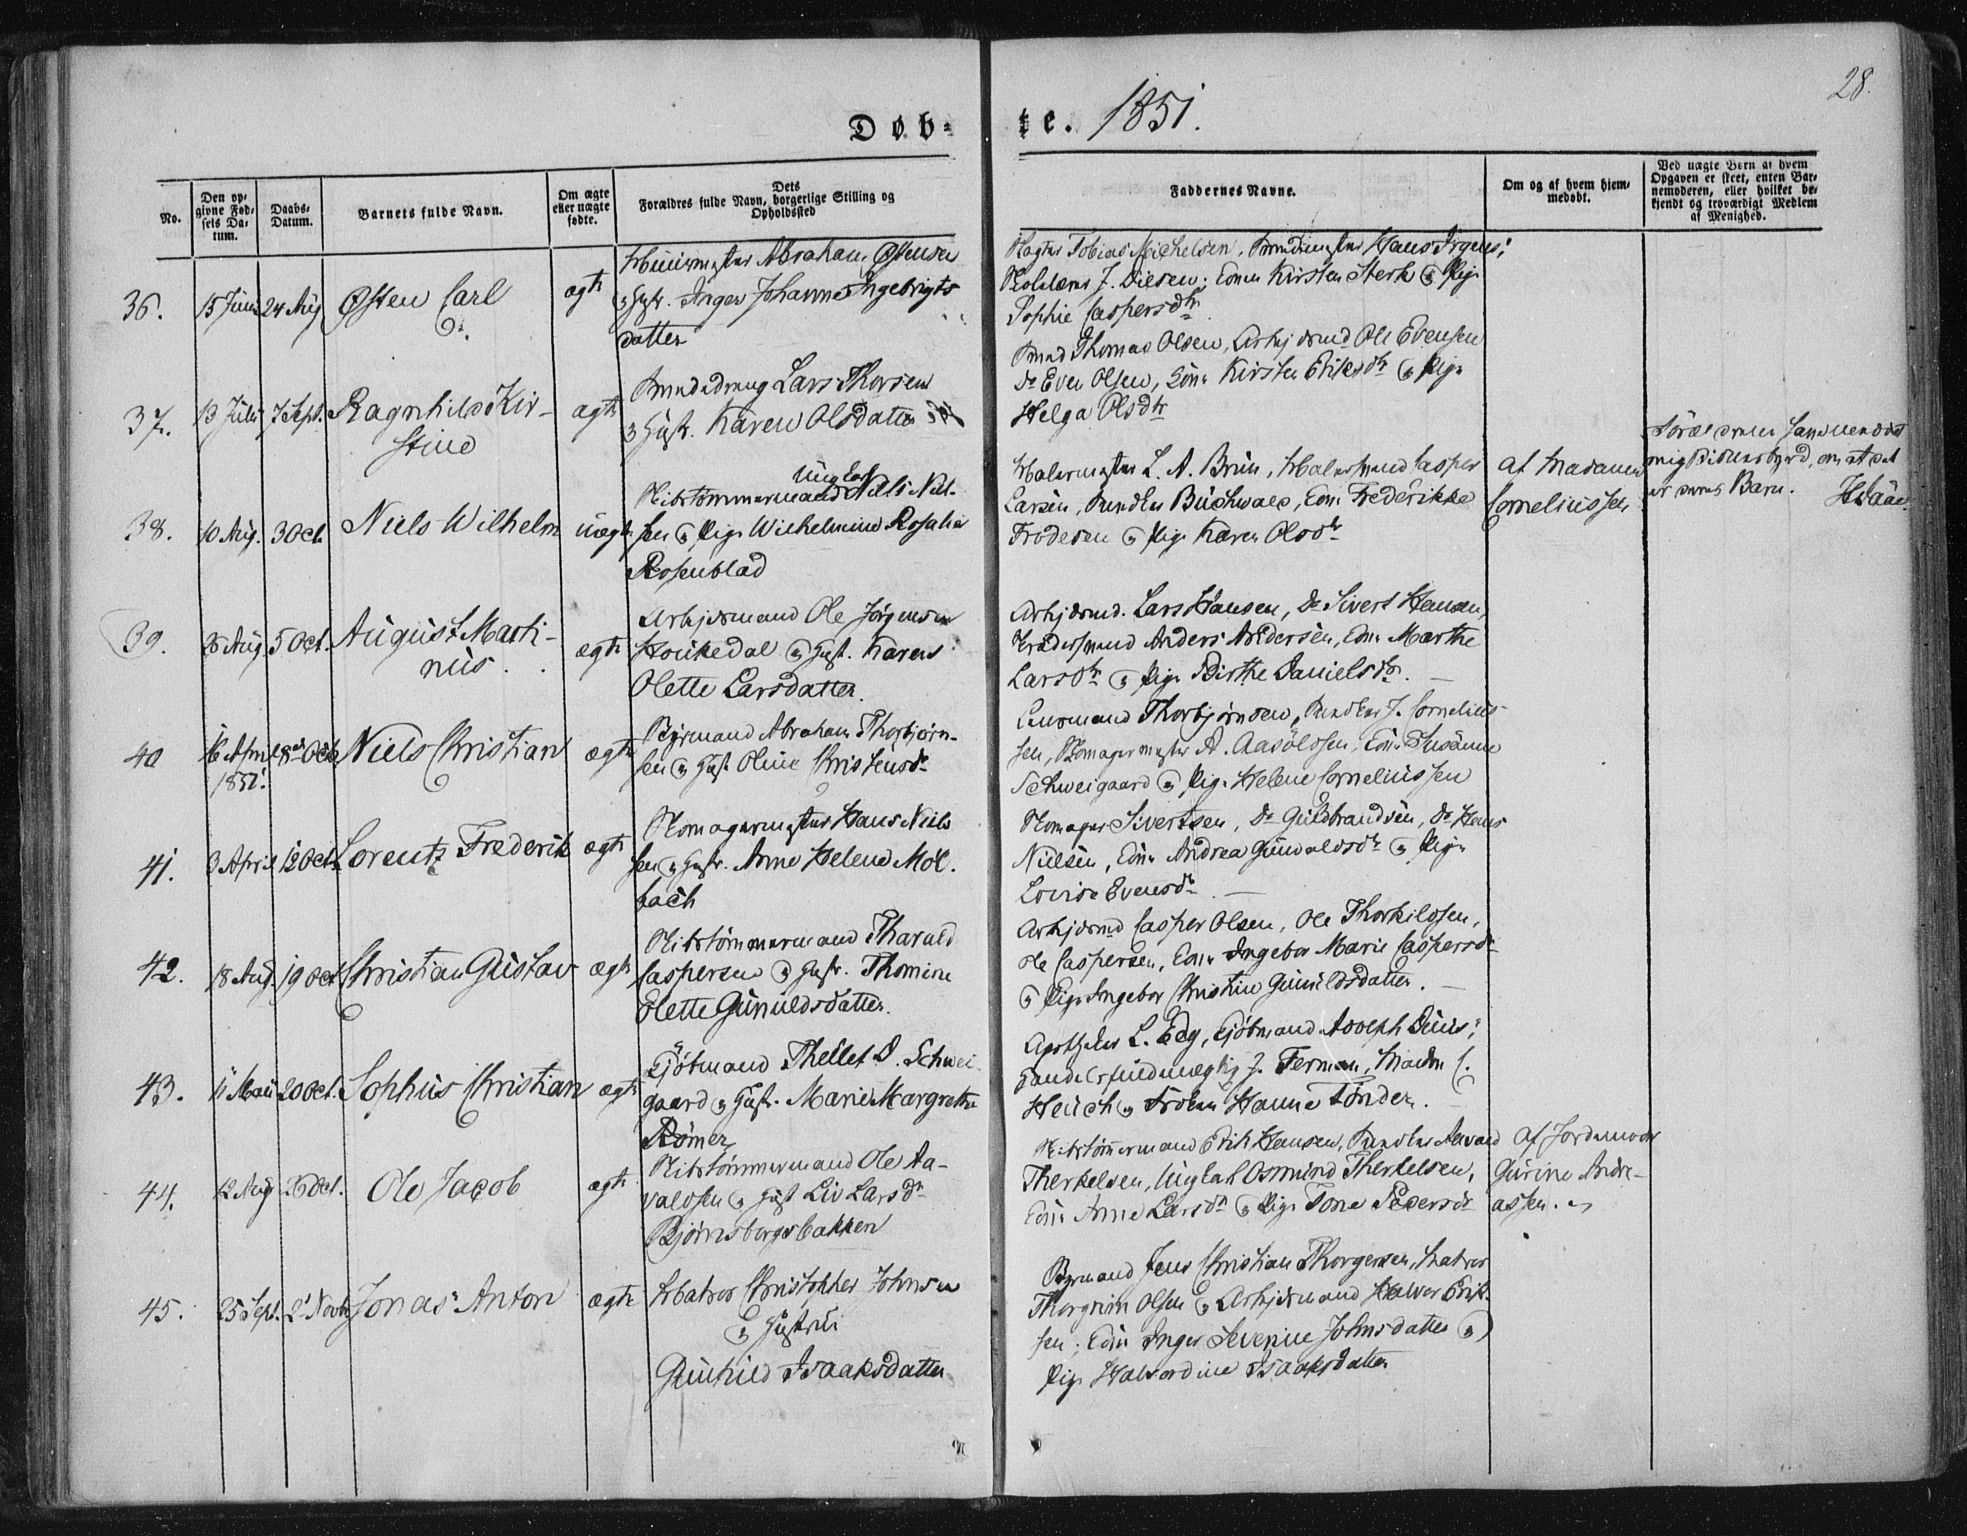 28.
Døb- te. 1851.
No.
Den op-
givne Fød-
sels Da-
tum.
Daabs-
Datum.
Barnets fulde Navn.
Om ægte
eller uægte
fødte.
Dets
Forældres fulde Navn, borgerlige Stilling og
Opholdssted
Faddernes Navne.
Om og af hvem hjem-
medøbt.
Ved uægte Børn af hvem
Opgaven er skeet, enten Bar-
nemoderen, eller hvilket be-
kjendt og troværdigt Medlem
af Menighed.
36. 15 Juni 24 Aug Østen Carl ægte
Abraham Østensen
Hustr. Inger Johanne Ingebrigts
datter
Tobias Michelsen, Hans Irgens,
Kirsten Sterk & Pige
Sophie Caspersdtr
37. 13 Juli 7 Sept. Ragnhild Kir-
stine
ægte
Lars Thorsen
& Hustr. Karen Olsdatter
Thomas Olsen, Arbjdsmd Ole Evensen
do Even Olsen, Kone Kirsten Eriksdtr & Pige
Helga Olsdtr
38. 10 Aug. 3 Oct. Niels Wilhelm uægte
Ungkarl
Skibstømmermand Niels Niel-
sen & Pige Wilhelmine Rosalia
Rosenblad
Malermester L. A. Brun, Casper
Larsen, Buchwald, Kone Frederikke
Frodesen & Pige Karen Olsdtr
af Madame
Corneliussen
er deres Barn.
39. 26 Aug 5 Oct. August Marti-
nius.
ægte
Arbjdsmand Ole Jørgensen
Houkedal & Hust. Karen
Olette Larsdatter.
Arbjdsmd. Lars Hansen, do Sivert Hansen,
Anders Andersen, Kone Marthe
Larsdtr & Pige Birthe Danielsdtr.
40 16 April
1851. 18de Oct Niels Christian ægte
Abraham Thorbjørn-
sen & Hust. Oline Christensdr
Thorbjørnsen, J. Cornelius-
sen, Skomagermester A. Aasolssen, Kone Susanne
Schweigaard & Pige Helene Corneliussen
41. 3 April 12 Oct. Lorentz Frederik ægte
Skomagermester Hans Niels
sen & Hustr. Anne Helene Mol-
bach
Skomager Sivertsen, do Guldbrandsen, do Hans
Nielsen, Kone Andrea Gunvaldsdtr & Pige
Lovise Evensdtr
42. 18 Aug. 19 Oct Christian Gustav ægte
Skibstømmermand Tharald
Caspersen & Hustr. Thomine
Olette Gunuldsdatter.
Arbjdsmd Casper Olsen, Ole Thorkildsen,
Ole Caspersen, Kone Ingebor Marie Caspersdr
& Pige Ingebor Christine Gunildsdatter.
43. 11 Mai 20 Oct. Sophus Christian ægte
Kjøbmand Thellef D. Schwei-
gaard & Hustr. Marie Margrethe
Rømer
Apotheker L. Edg, Kjøbmand Adolph Duus,
J. Ferman, Madm C.
Heuch & Frøken Hanne Tønder.
44. 12 Aug 26 Oct. Ole Jacob ægte
Skibstømmermand Ole Aa-
valdsen & Hust Liv Larsdtr
Bjørnsbergsbakken
Skibstømmermand Erik Hansen, Aavald
Therkelsen, Ungkarl Osmund Therkelsen,
Kone Anne Larsdtr & Pige Tone Pedersdr
af Jordemoder
Gurine Andre-
assen.
45. 25 Sept. 2 Novbr Jonas Anton ægte
Matros Christopher Johnsen
& Hustrue
Gunhild Isaaksdatter
Jens Christian Thorgersen, Matros
Thorgrim Olsen & Arbjdsmand Halvor Erik-
sen; Kone Inger Severine Johnsdatter &
Pige Halvordine Isaaksdatter